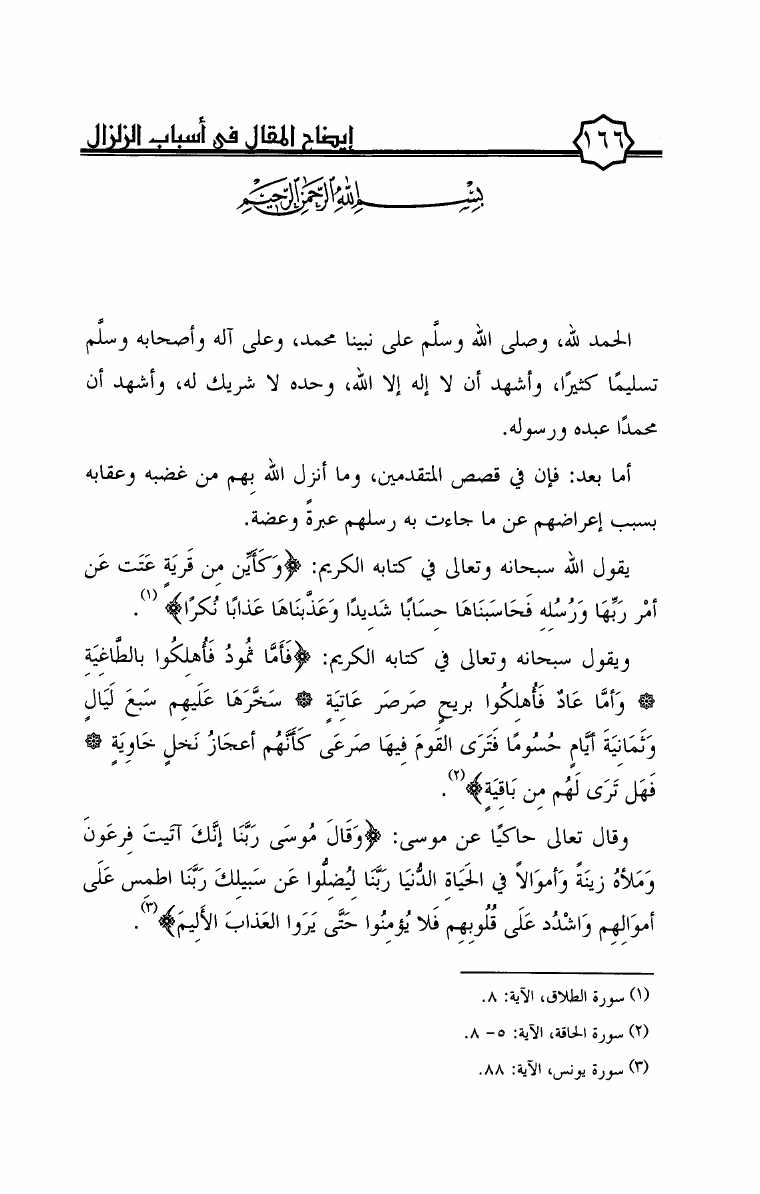 ١٦٦ إيضاح المقال في أسباب الزلزال
بسم الله الرحمن الرحيم
الحمد لله، وصلى الله وسلَّم على نبينا محمد، وعلى آله وأصحابه وسلَّم
تسليمًا كثيرًا، وأشهد أن لا إله إلا الله، وحده لا شريك له، وأشهد أن
محمدًا عبده ورسوله.
أما بعد: فإن في قصص المتقدمين، وما أنزل الله بِهم من غضبه وعقابه
بسبب إعراضهم عن ما جاءت به رسلهم عبرةً وعضة.
يقول الله سبحانه وتعالى في كتابه الكريم: ﴿وَكَأَيِّن مِن قَريَةٍ عَتَت عَن
أمْر رَبِّهَا وَرُسُلِه فَحَاسَبنَاهَا حِسَابًا شَديدًا وَعَذَّبنَاهَا عَذابًا نُكرًا﴾(١).
ويقول سبحانه وتعالى في كتابه الكريم: ﴿فَأَمَّا ثَمُودُ فَأُهلِكُوا بالطَّاغيَة
۞ وَأمَّا عَادٌ فَأُهلِكُوا بريحٍ صَرصَر عَاتيَةٍ ۞ سَخَّرَهَا عَلَيهِم سَبعَ لَيَالٍ
وَثَمَانيَةَ أيَّامٍ حُسُومًا فَتَرَى القَومَ فِيهَا صَرعَى كَأنَّهُم أعجَازُ نَخلٍ خَاويَةٍ ۞
فَهَل تَرَى لَهُم مِن بَاقيَةٍ﴾(٢).
وقال تعالى حاكيًا عن موسى: ﴿وَقَالَ مُوسَى رَبَّنَا إنَّكَ آتَيتَ فِرعَونَ
وَمَلأهُ زينَةً وَأموَالاً في الحَيَاةِ الدُّنيَا رَبَّنَا لِيُضلُّوا عَن سَبيلِكَ رَبَّنَا اطمِس عَلَى
أموَالِهِم وَاشْدُد عَلَى قُلُوبِهِم فَلا يُؤمِنُوا حَتَّى يَرَوا العَذَابَ الأَلِيمَ﴾(٣).
(١) سورة الطلاق، الآية: ٨.
(٢) سورة الحاقة، الآية: ٥- ٨.
(٣) سورة يونس، الآية: ٨٨.